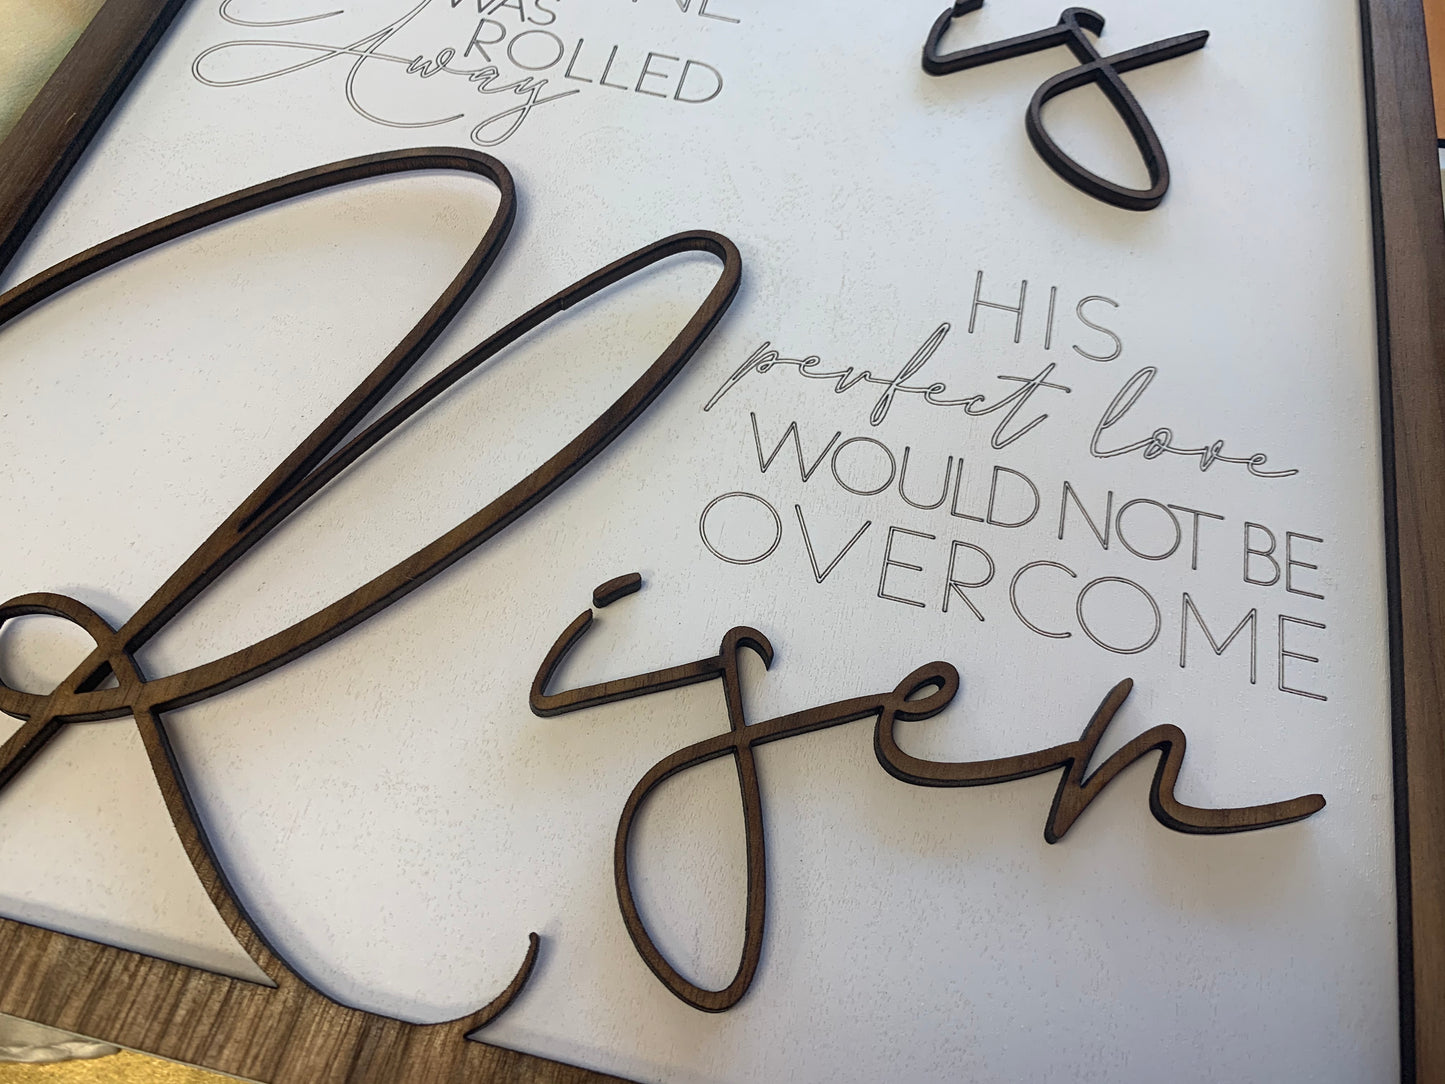 WAS
ROLLED
Away
is
HIS
perfect love
WOULD NOT BE
OVERCOME
Risen